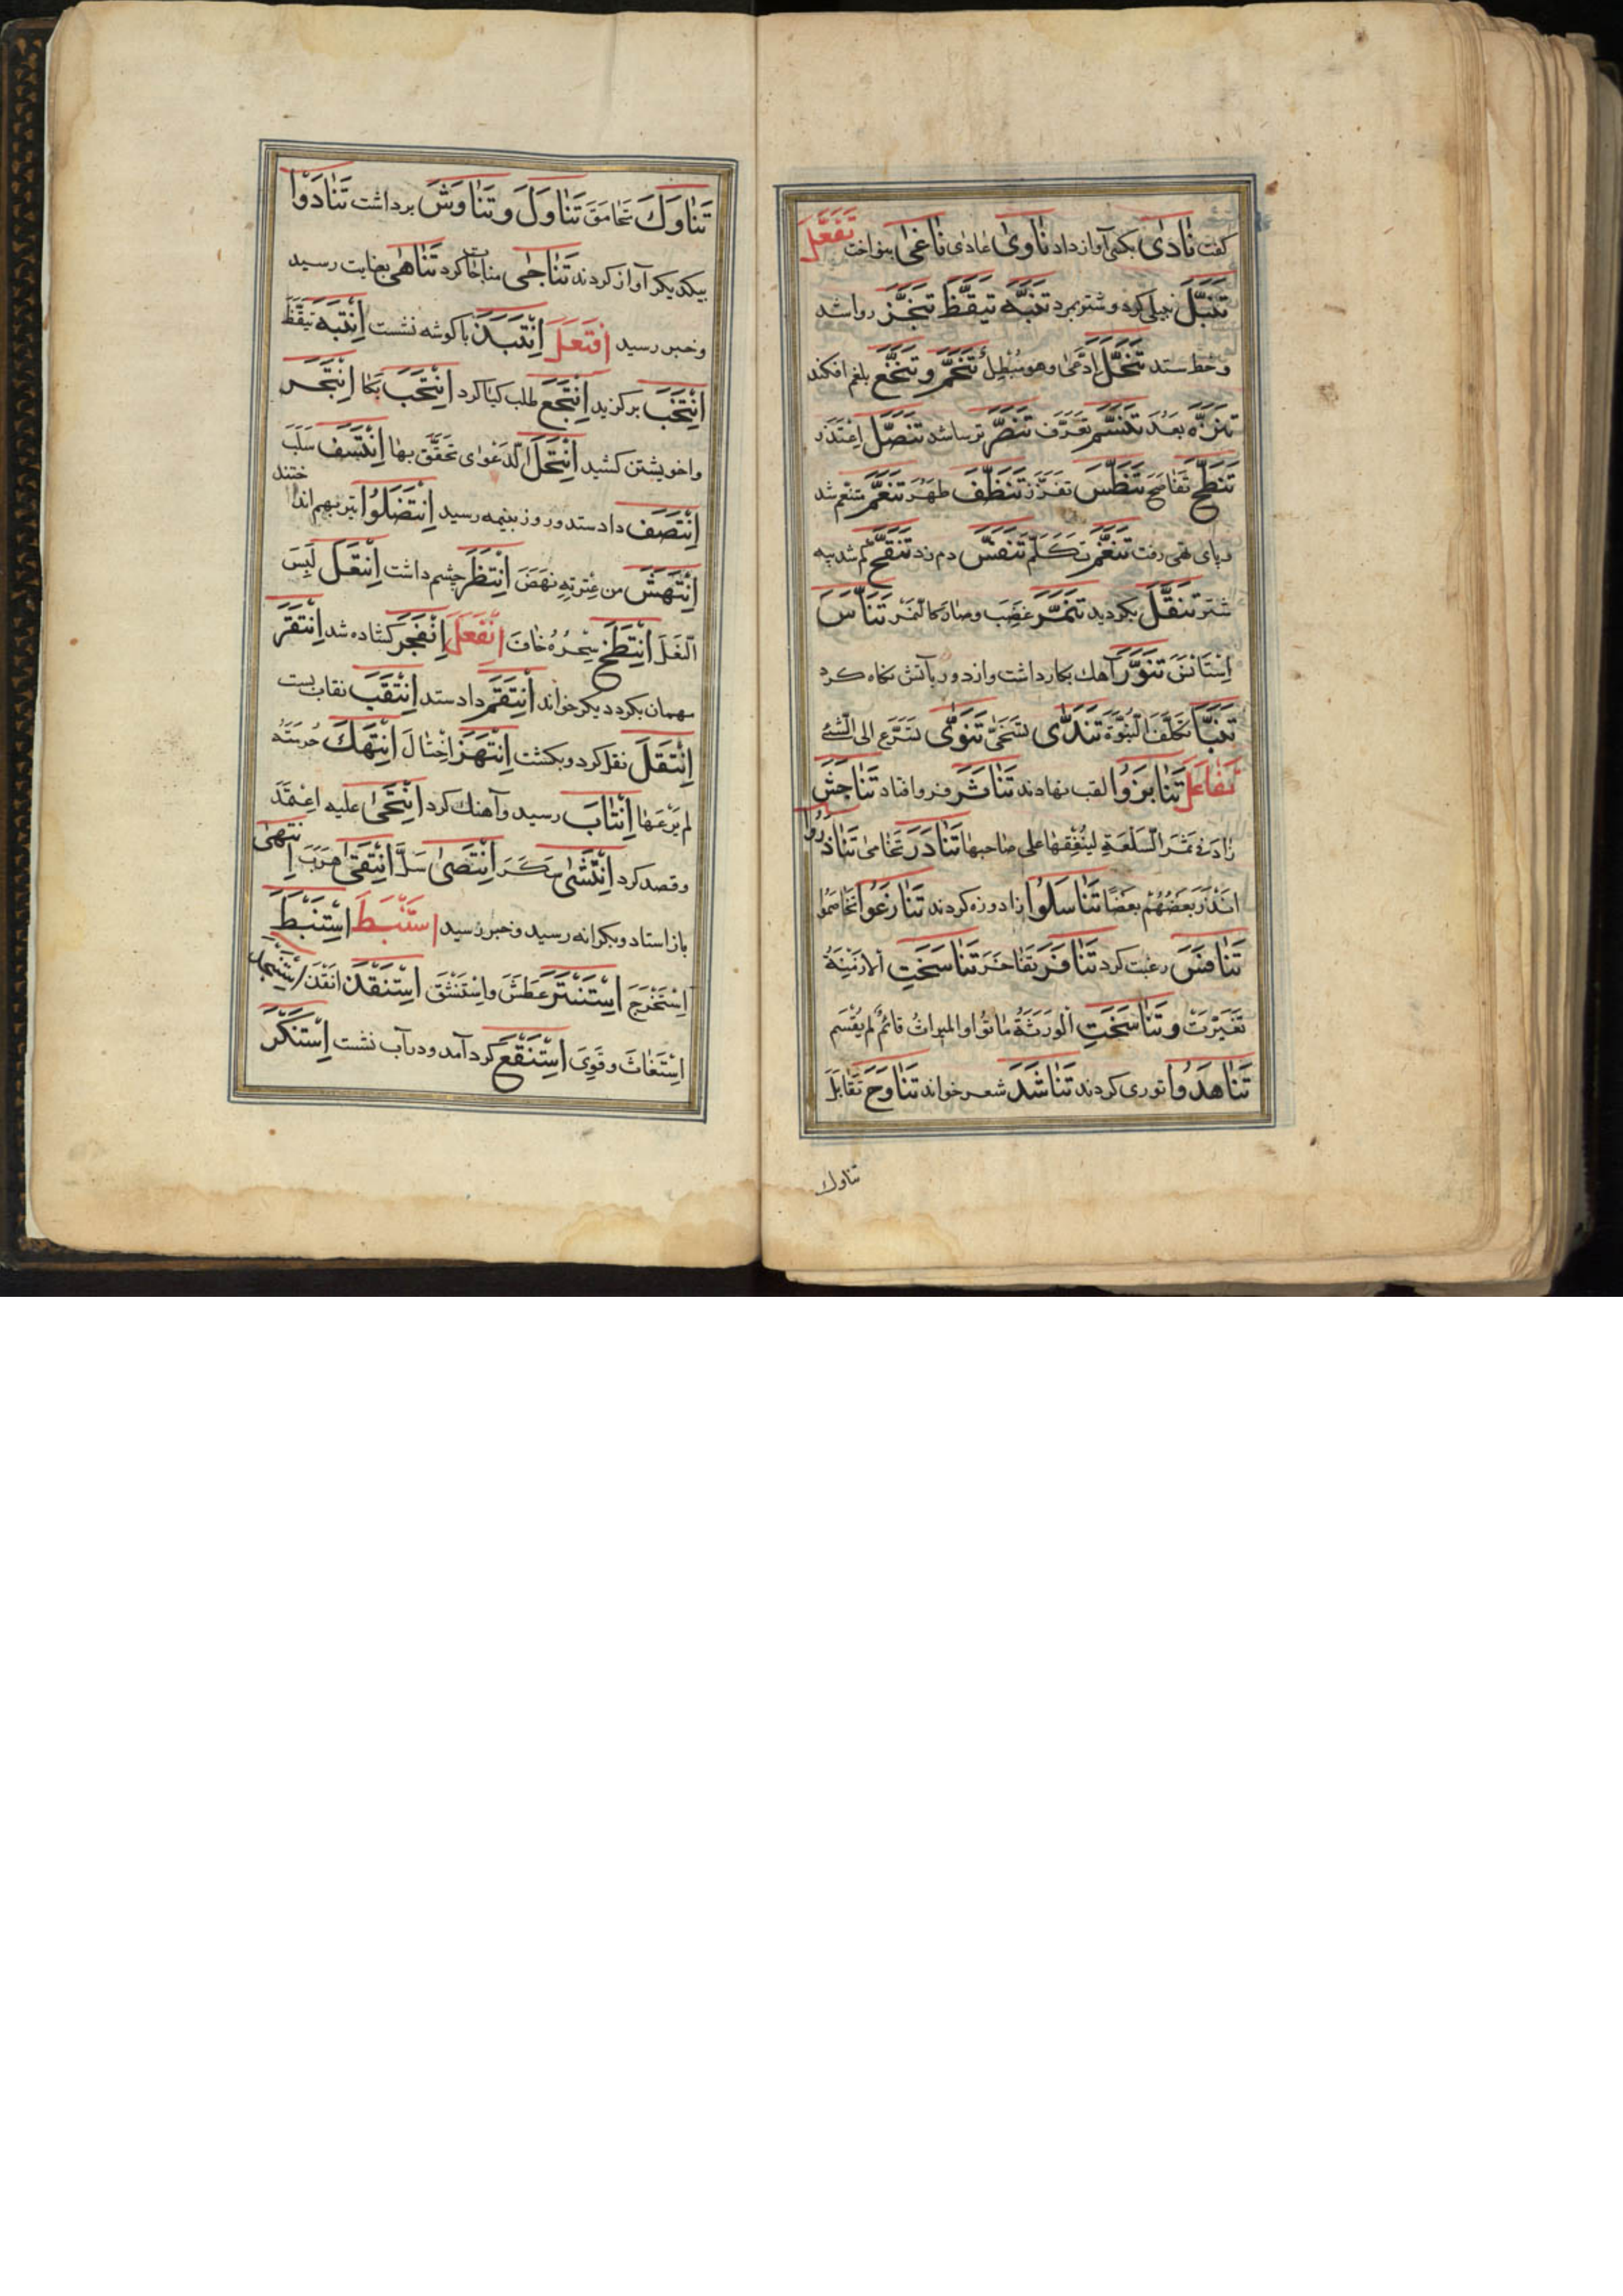 كفت نَادَىٰ بكسی آواز داد نَاوىٰ عادٰى نَاغىٰ بنواخت تَفَعَّلَ
تَنَبَّلَ نبیلی کرد و شتر بمرد تَنَبَّهَ تَيَقَّظَ تَنَجَّزَ روا شد
و خط ستد تَنَحَّلَ اِدَّعىٰ وهو مُبْطِلٌ تَنَخَّمَ و تَنَخَّعَ بلغم افكند
تَنَزَّهَ بَعُدَ تَنَسَّمَ تَعَرَّفَ تَنَصَّرَ ترسا شد تَنَصَّلَ اِعْتَذَرَ
تَنَطَّحَ تَفَاصَحَ تَنَطَّسَ تَقَزَّزَ تَنَظَّفَ طَهُرَ تَنَعَّمَ متنعم شد
و پای تهی رفت تَنَغَّمَ تَكَلَّمَ تَنَفَّسَ دم زد تَنَقَّحَ كم شد پیه
شتر تَنَقَّلَ بكردید تَنَمَّرَ غَضِبَ وصار كالنَّمِر تَنَاَّسَ
اِسْتَانَسَ تَنَوَّرَ آهك بكار داشت و از دور بآتش نكاه كرد
تَنَبَّأَ تَكَلَّفَ النُّبُوَّةَ تَنَدَّى تَسَخَّى تَنَزَّى تَسَرَّع الى الشَّئ
تَفَاعَلَ تَنَابَزُوا لقب نهادند تَنَاثَرَ فرو افتاد تَنَاجَشَ
زادَ فى ثمَن السلعَةِ ليُنْفِقهَا على صَاحبهَا تَنَادَرَ تَحَامىٰ تَنَاذَرُوا
انذَرَ بَعضُهُمْ بَعضًا تَنَاسَلُوا زاد و زه كردند تَنَازَعُوا تَخَاصَمُوا
تَنَافَسَ رغبت كرد تَنَافَرَ تَفَاخَرَ تَنَاسَخَتِ الازمِنَةُ
تَغَيَّرَتْ وتَنَاسَخَتِ الوَرَثَةُ مَاتُوا والميراثُ قائمٌ لم يُقْسَم
تَنَاهَدُوا توری كردند تَنَاشَدَ شعر خواند تَنَاوَحَ تَقَابَلَ
تناوك
تَنَاوَكَ تَحَامَقَ تَنَاوَلَ و تَنَاوَشَ برداشت تَنَادَوْا
بیكدیكر آواز كردند تَنَاجىٰ مناجات كرد تَنَاهىٰ بغایت رسید
و خبر رسید اِفْتَعَلَ اِنْتَبَذَ با كوشه نشست اِنْتَبَهَ تَيَقَّظَ
اِنْتَخَبَ بركزید اِنْتَجَعَ طلب كیا كرد اِنْتَحَبَ بَكَا اِنْتَجَرَ
واخویشتن كشید اِنْتَحَلَ الدَعْوٰى تَحَقَّقَ بها اِنْتَسَفَ سَلَبَ
اِنْتَصَفَ داد ستد و روز بنیمه رسید اِنْتَضَلُوا تیر بهم انداختند
اِنْتَهَشَ من عثرتِهِ نهَضَ اِنْتَظَرَ چشم داشت اِنْتَعَلَ لَبِسَ
النَّعْلَ اِنْتَفَخَ سَحْرُهُ خَافَ اِنْفَعَلَ اِنْفَجَرَ كشاده شد اِنْتَقَرَ
مهمان بكرد دیكر خواند اِنْتَقَمَ داد ستد اِنْتَقَبَ نقاب بست
اِنْتَقَلَ نقل كرد و بكشت اِنْتَهَزَ اِحْتَالَ اِنْتَهَكَ حُرمَتَهُ
لم يَرْعَهَا اِنْتَابَ رسید و آهنك كرد اِنْتَحىٰ عليه اِعْتَمَدَ
و قصد كرد اِنْتَشىٰ سَكَرَ اِنْتَضىٰ سَلَّ اِنْتَفىٰ هَرَبَ اِنتَهىٰ
باز استاد و بكرانه رسید و خبر رسید اِسْتَنْبَطَ اِسْتَنْبَطَ
اِسْتَخْرَجَ اِسْتَنْثَرَ عَطَسَ واِسْتَنْشَقَ اِسْتَنْقَذَ انقَذَ اِسْتَنْجَدَ
اِسْتَغَاثَ و قَوِىَ اِسْتَنْقَعَ كرد آمد و در آب نشست اِسْتَنْكَرَ